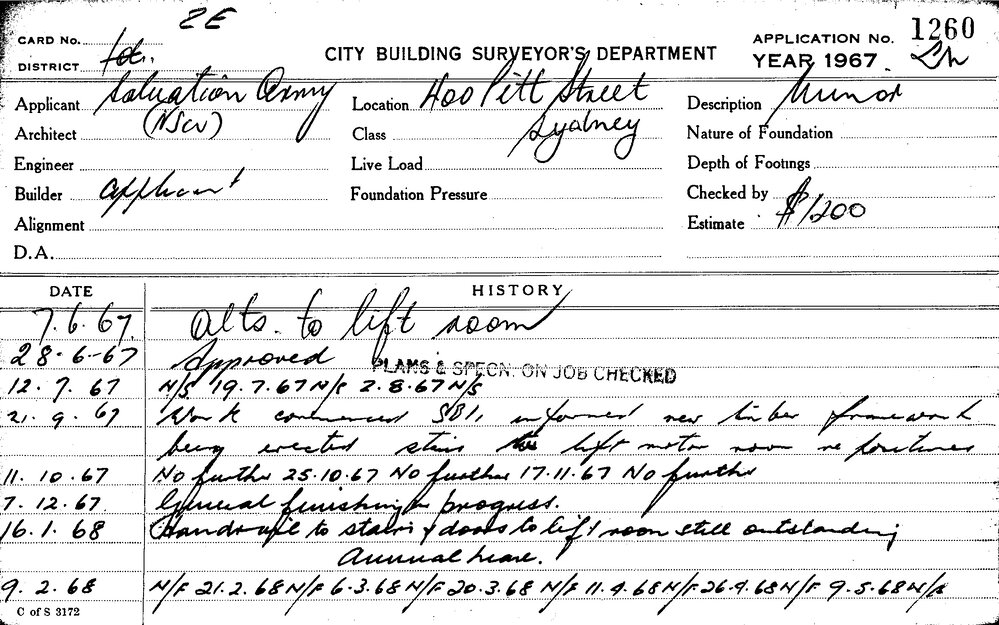 2E
CARD No.
DISTRICT
CITY BUILDING SURVEYOR'S DEPARTMENT
APPLICATION No. 1260
YEAR 1967.
Applicant Salvation Army
(NSW)
Location 400 Pitt Street
Sydney
Description Minor
Architect
Class
Nature of Foundation
Engineer
Live Load
Depth of Footings
Builder applicant
Foundation Pressure
Checked by
Alignment
Estimate $1200
D.A.
DATE HISTORY
7.6.67. Alts. to lift room
28-6-67 Approved
PLANS & SPECN. ON JOB CHECKED
12.7.67 N/S 19.7.67 N/S 2.8.67 N/S
21.9.67 Work commenced SBI, informed new timber framework
being erected stairs lift motor room re positioned
11.10.67 No further 25.10.67 No further 17.11.67 No further
7.12.67. General finishing in progress.
16.1.68 Handrail to stairs & doors to lift room still outstanding
Annual leave.
9.2.68 N/F 21.2.68 N/F 6.3.68 N/F 20.3.68 N/F 11.4.68 N/F 26.4.68 N/F 9.5.68 N/F
C of S 3172